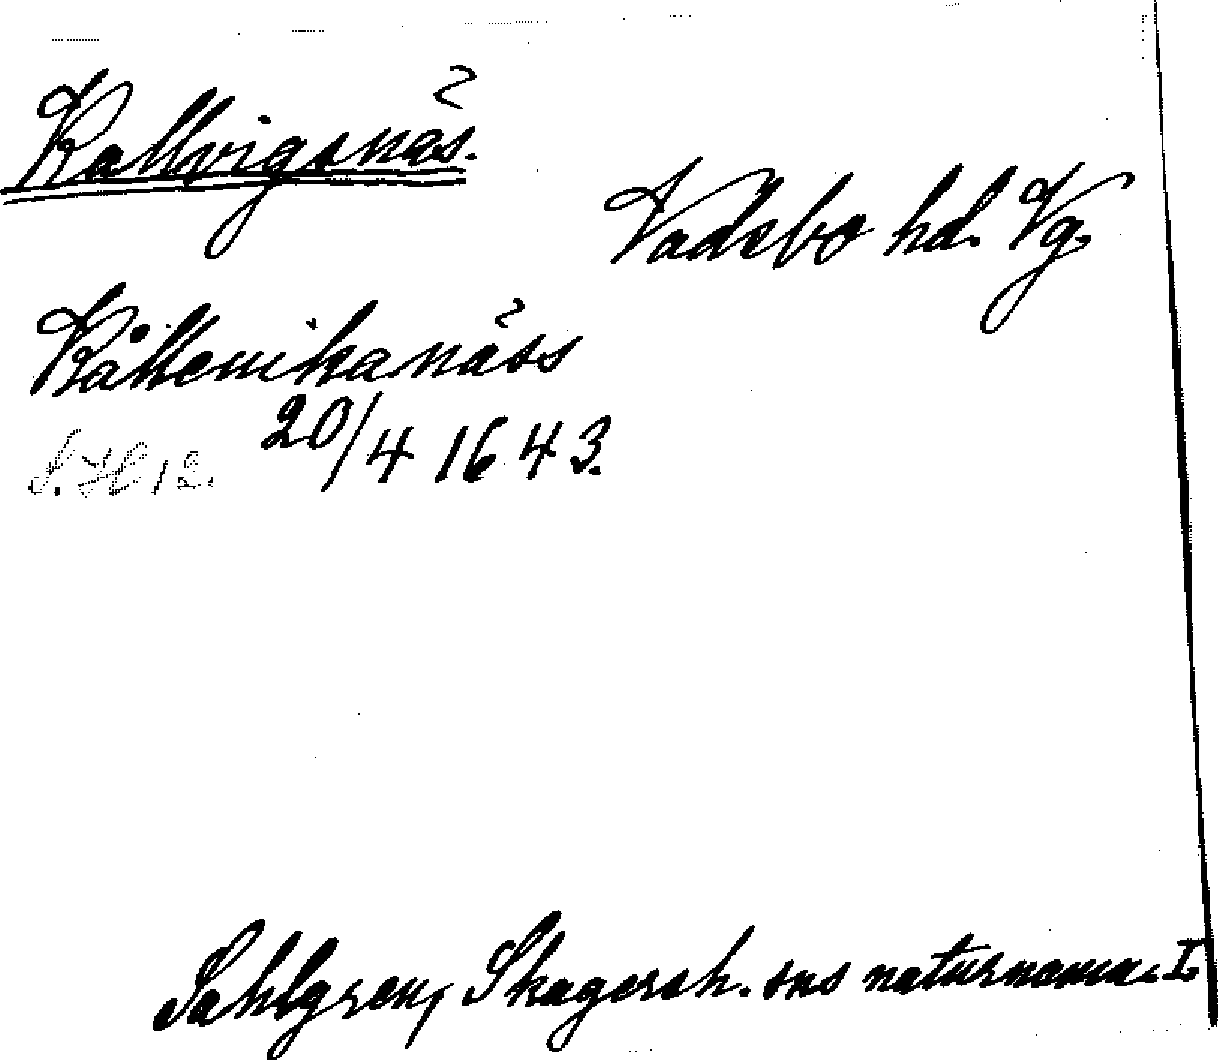 Kallvigsnäs.
Vadsbo hd. Vg.
Kållewikanäss
20/4 1643.
S. H. 12.
Sahlgren, Skagersh. sns naturnamn. I.